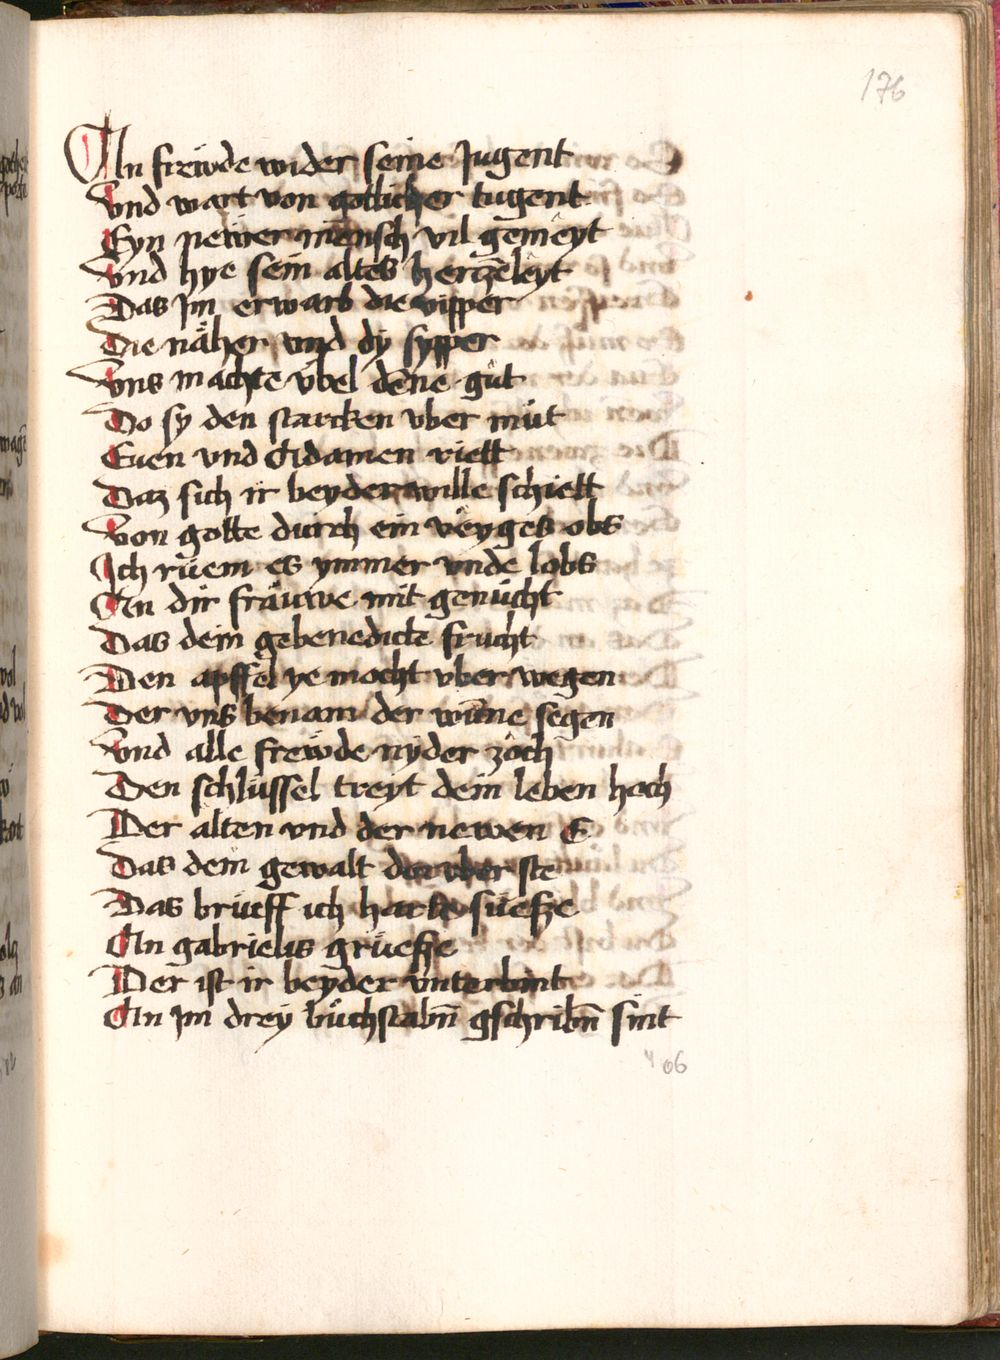 176
An frewde wider seine Jugent
Vnd wart von gotlicher tugent
Eyn newer mensch vil gemeyt
Vnd hye sein altes hertzeleyt
Das jm erwarb die vipper
Die näher vnd dy sypper
Vns machte vbel denne gůt
Do sy den starcken vber můt
Euen vnd Adamen riett
Daz sich ir beyder wille schiett
Von gotte durch ein veyges obs
Ich rüem es ymmer vnde lobs
An dir frauwe mit genücht
Das dein gebenedicte frucht
Den apffel ye mocht vber wegen
Der vns benam der wūne segen
Vnd alle frewde nyder zoch
Den schlüssel treyt dein leben hoch
Der alten vnd der newen E
Das dein gewalt dar vber ste
Das brüeff ich harte süeße
An gabrielis grüeße
Der ist ir beyder vnterbint
An jm drey bůchstabn̄ gschribn̄ sint
406